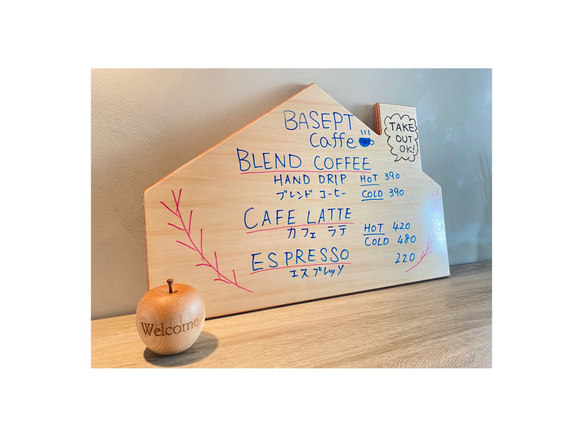 BASEPT
Caffe
TAKE
OUT
OK!
BLEND COFFEE
HAND DRIP HOT 390
ブレンド コーヒー COLD 390
CAFE LATTE
カフェ ラテ HOT 420
COLD 480
ESPRESSO 220
エスプレッソ
Welcome